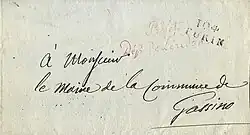 P104P
TURIN
à Monsieur
le Maire de la Commune de
Gassino